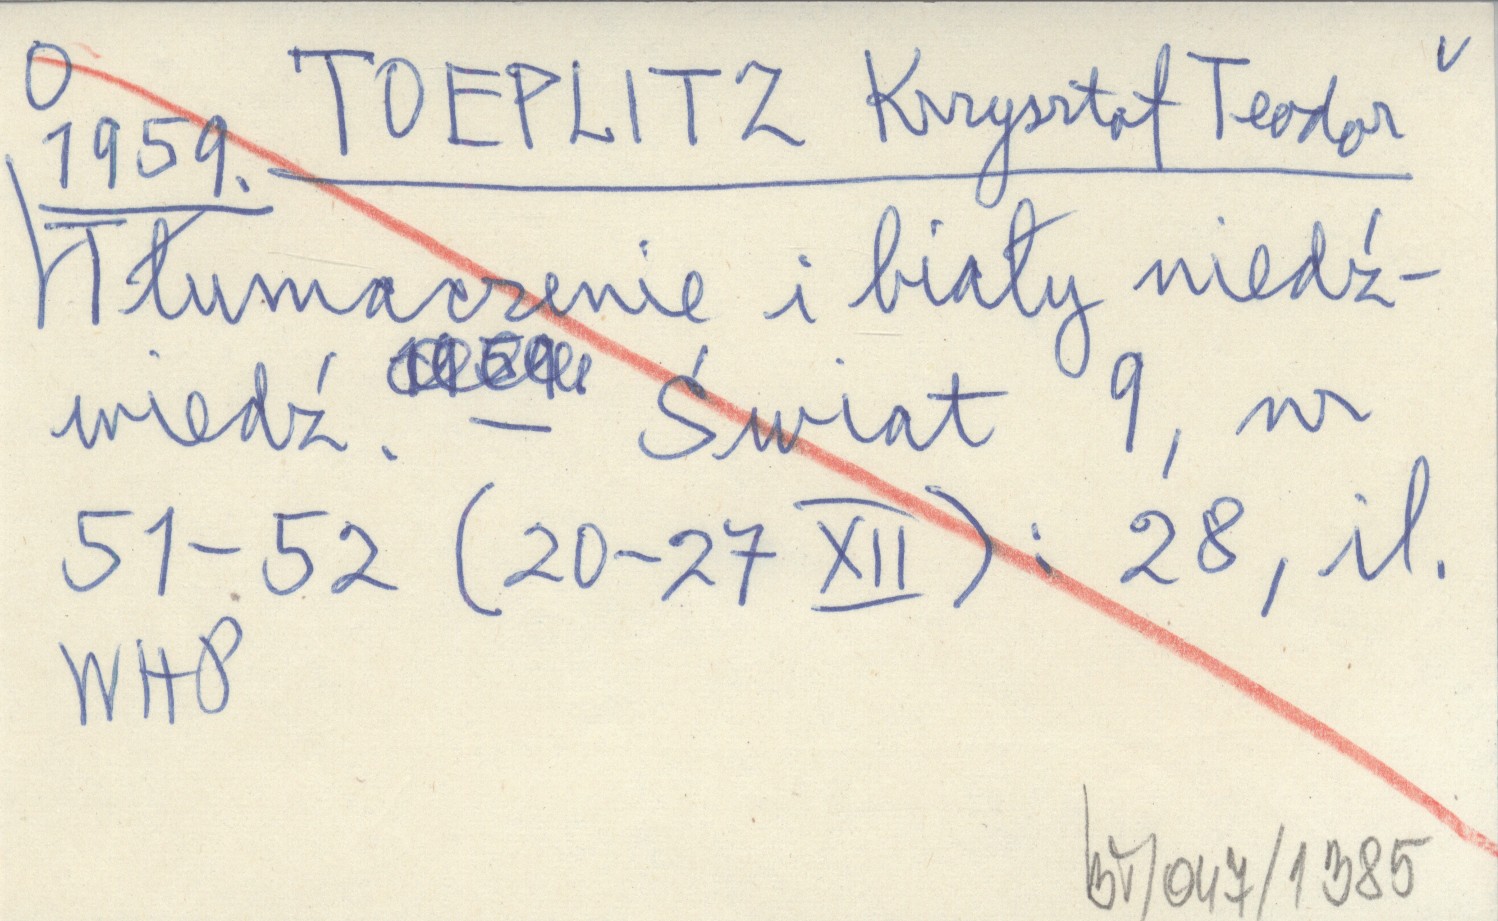 O TOEPLITZ Krzysztof Teodor v
1959.
Tłumaczenie i biały niedź-
wiedź. — Świat 9, nr
51-52 (20-27 XII): 28, il.
WHP
/047/1385